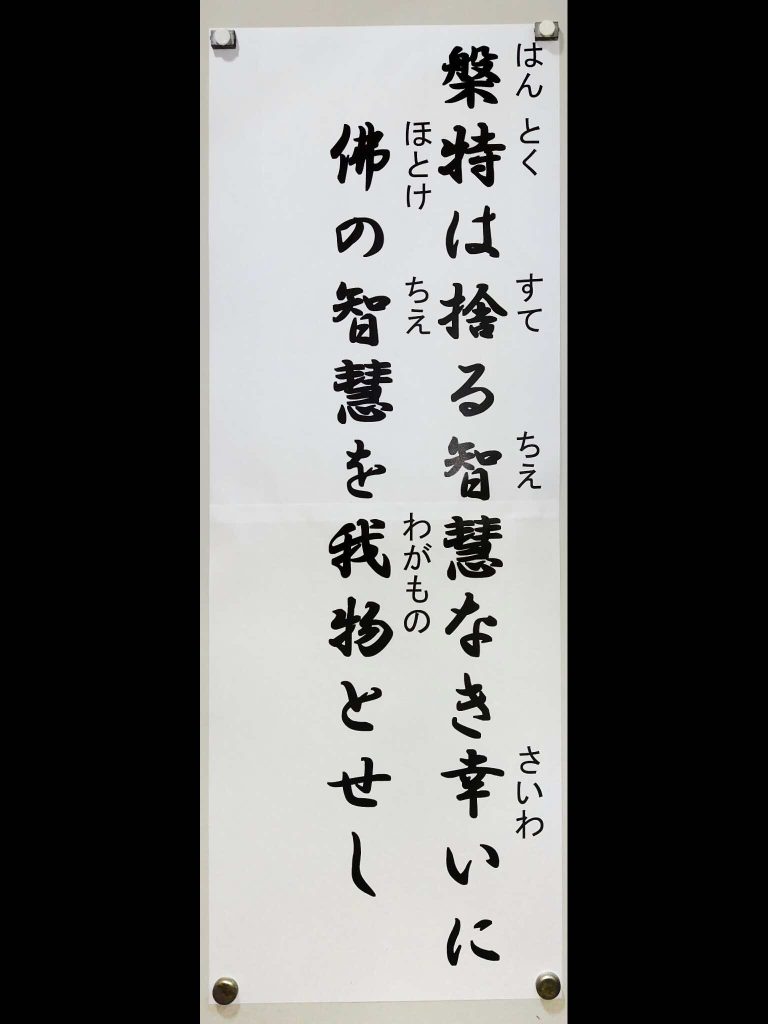 はん とく すて ちえ さいわ
槃特は捨る智慧なき幸いに
ほとけ ちえ わがもの
佛の智慧を我物とせし